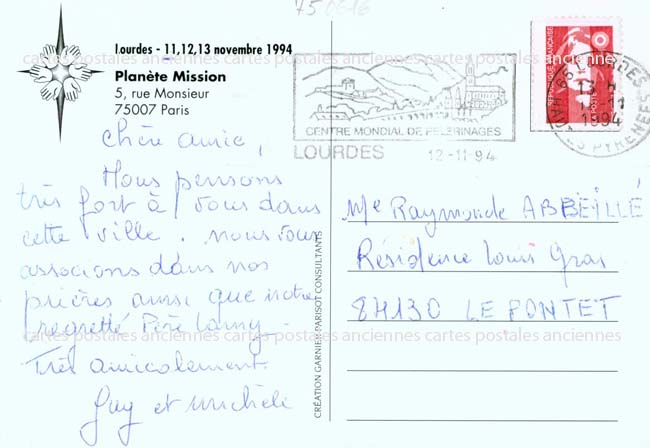 75 0616
Lourdes - 11,12,13 novembre 1994
cartes postales anciennes cartes postales anciennes cartes postales anciennes
Planète Mission
5, rue Monsieur
75007 Paris
CENTRE MONDIAL DE PELERINAGES
LOURDES 12-11-94
REPUBLIQUE FRANÇAISE
LA POSTE
13 H
12-11
1994
HAUTES PYRENEES
Chère amie,
Nous pensons
très fort à vous dans
cette ville. nous vous
associons dans nos
prières ainsi que notre
regretté Père Lamy.
Très amicalement.
Guy et Michèle
CRÉATION GARNIER-PARISOT CONSULTANTS
Me Raymonde ABBEÏLLÉ
Résidence Louis Gros
84130 LE PONTET
cartes postales anciennes cartes postales anciennes cartes postales anciennes